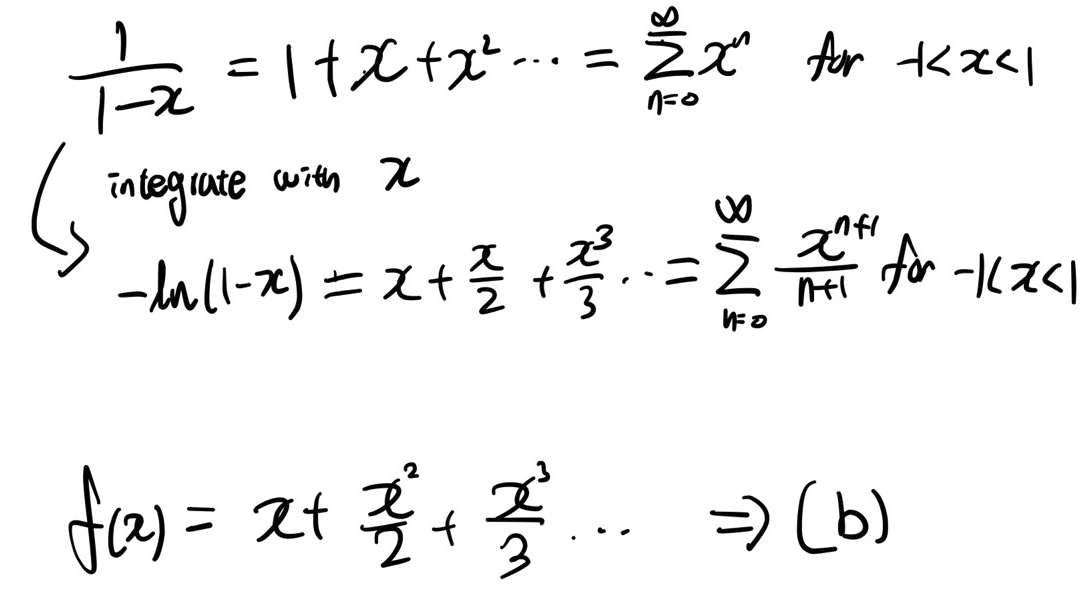 1/(1-x) = 1 + x + x² ⋯ = ∑_{n=0}^{∞} xⁿ for -1<x<1
integrate with x
-ln(1-x) = x + x/2 + x³/3 ⋯ = ∑_{n=0}^{∞} x^{n+1}/(n+1) for -1<x<1
f(x) = x + x²/2 + x³/3 ⋯ ⇒ (b)